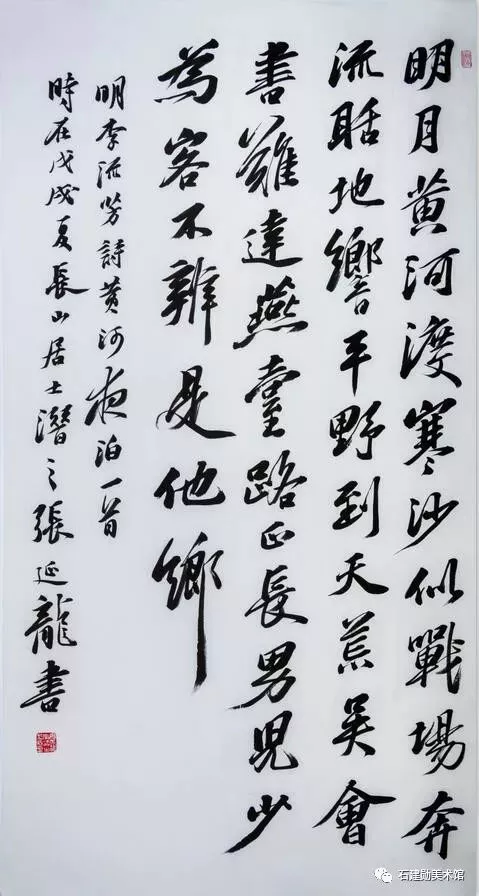 明月黄河渡寒沙似戰場奔
流聒地響平野到天荒吴會
書難達燕臺路正長男兒少
為客不辨是他鄉
明李流芳詩黄河夜泊一首
時在戊戌夏長山居士潛之張延龍書
石建勋美术馆